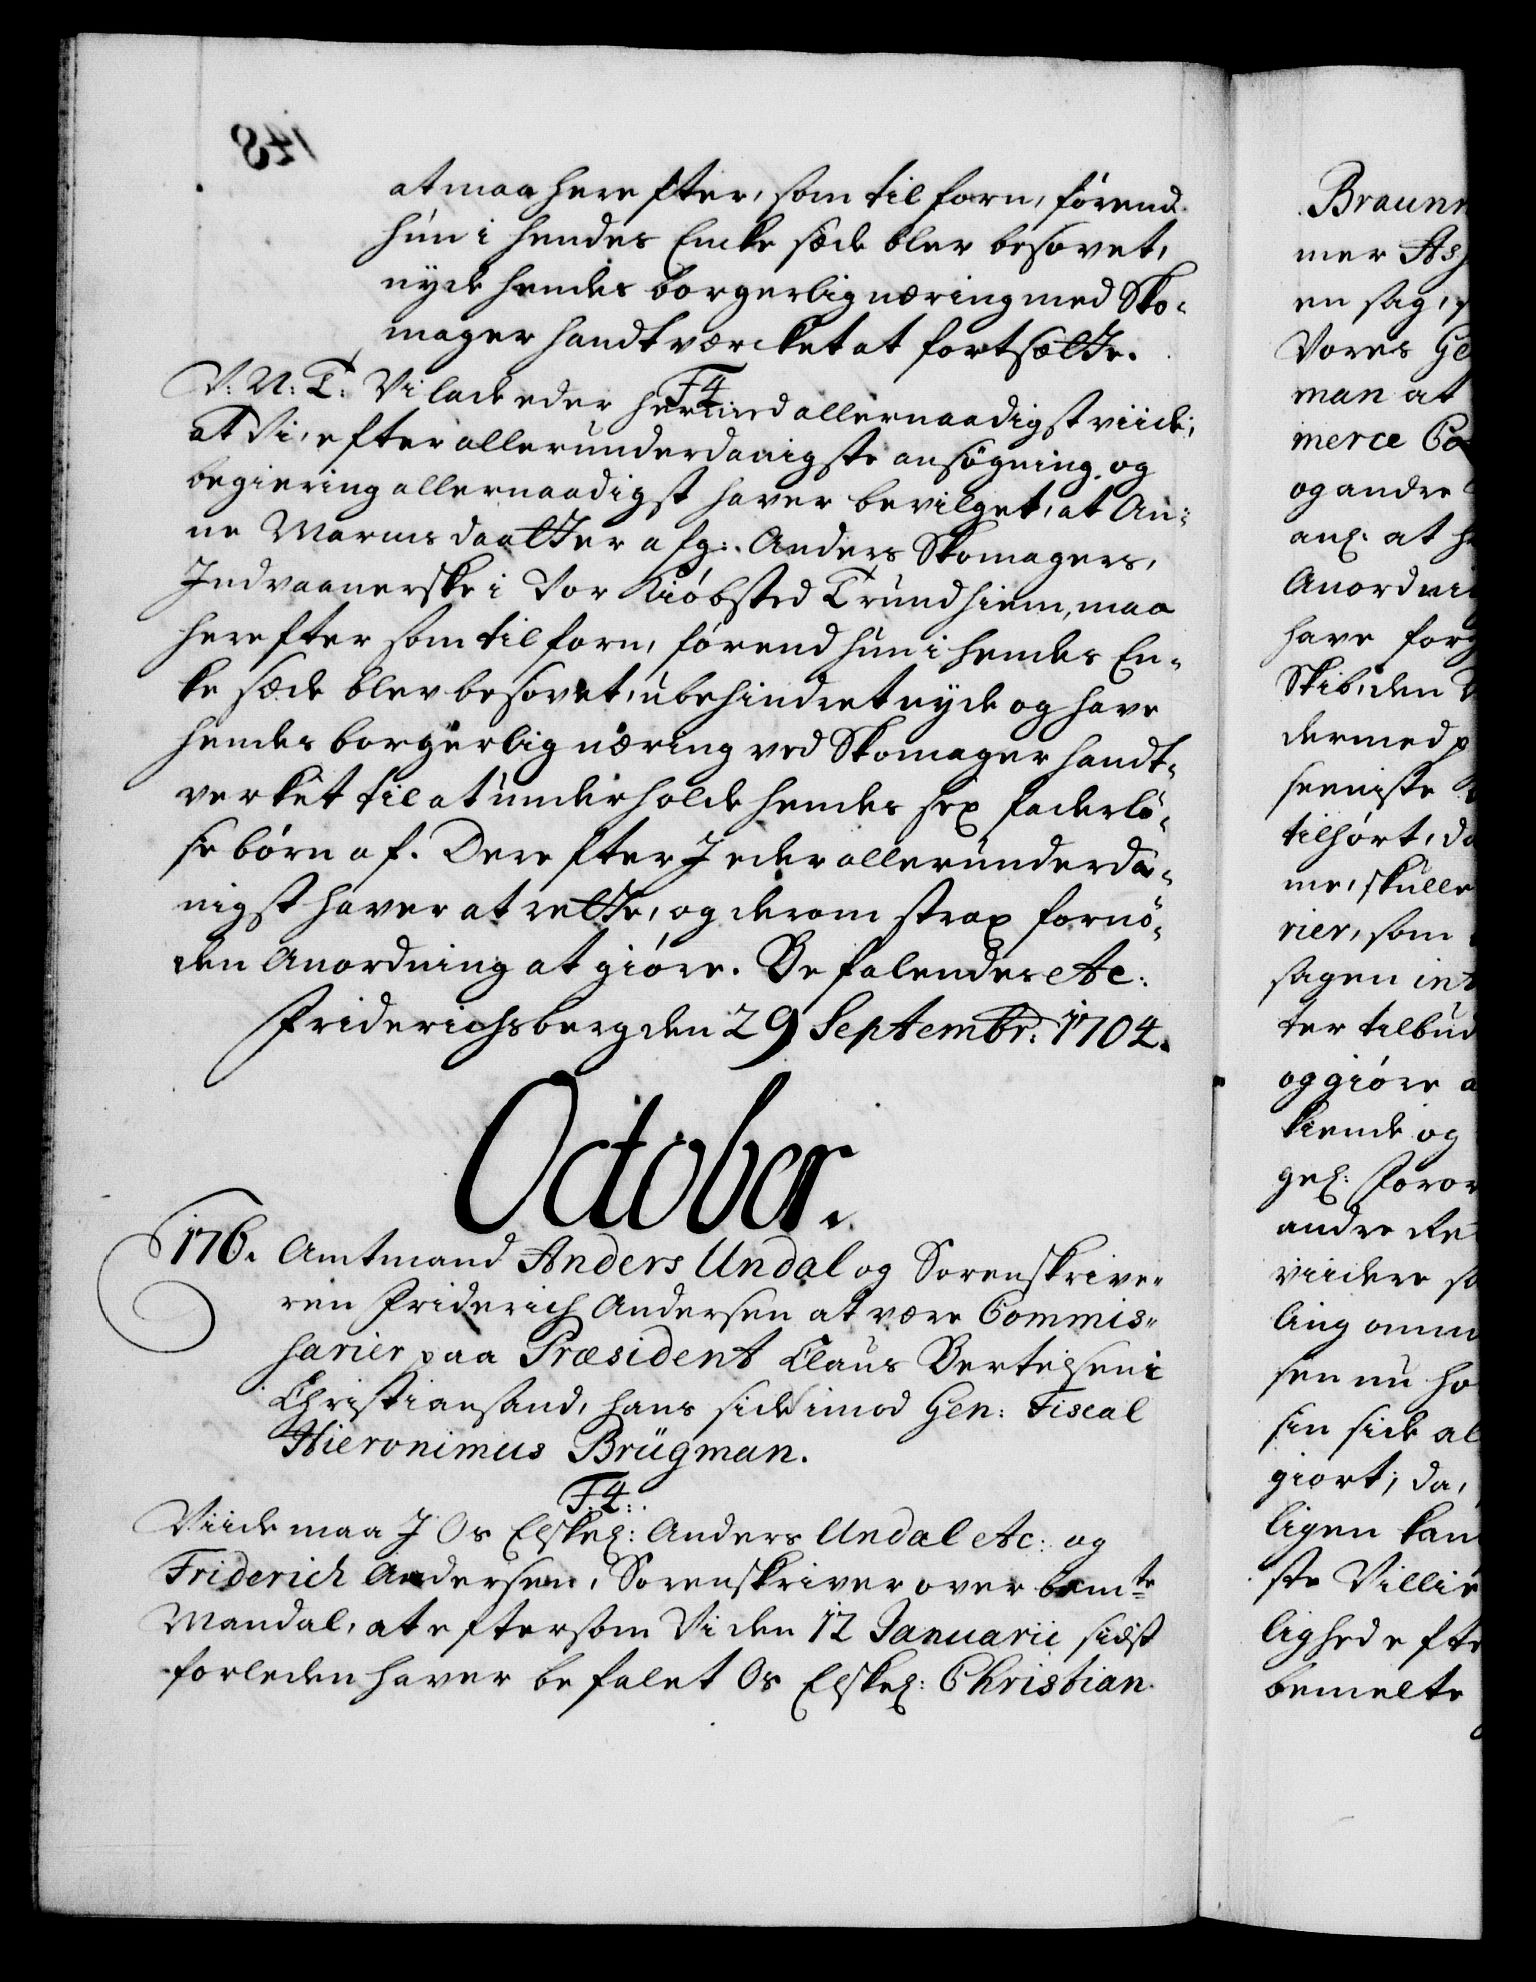 at maa herefter, som til forn, förend
hun i hendes Encke sæde bler besovet,
nyde hendes borgerlig næring med Sko-
mager handtværcket at fortsætte.
F4
V: U: T: Vi lade eder hermed allernaadigst viide,
at Vi, efter allerunderdanigste ansögning og
begiering allernaadigst haver bevilget, at An-
ne daatter afg: Anders Skomagers,
Indvaanerske i Vor Kiöbsted Trundhiem, maa
herefter som til forn, förend hun i hendes En-
ke sæde blev besovet, ubehindret nyde og have
hendes borgerlig næring ved Skomager handt-
verket til at underholde hendes sex faderlö-
se börn af. Derefter I eder allerunderda-
nigst haver at rette, og derom strax fornö-
den Anordning at giöre. Befalendes etc:
Friderichsberg den 29 Septembr: 1704.
October.
176. Amtmand Anders Undal og Sorenskrive-
ren Friderich Andersen at være Commis-
sarier paa Præsident Claus Bertelsen i
Christiansand, hans side imod Gen: Fiscal
Hieronimus Brügman.
F4:
Viide maa I Os Elskel: Anders Undal etc: og
Friderich Andersen, Sorenskriver over bemte
Mandal, at eftersom Vi den 12 Januarii sidst
forleden haver befalet Os Elskel: Christian
mer
en sag,
Vores
man at
merce
og andre
anl: at
have
Skib, den
dermed
tilhört,
me, skulle
rier, som
sagen
ter tilbud
og giöre
kiende og
andre
viidere
sen nu
sin side
giort; da,
ligen kan
ste Villie
lighed
bemelte
148